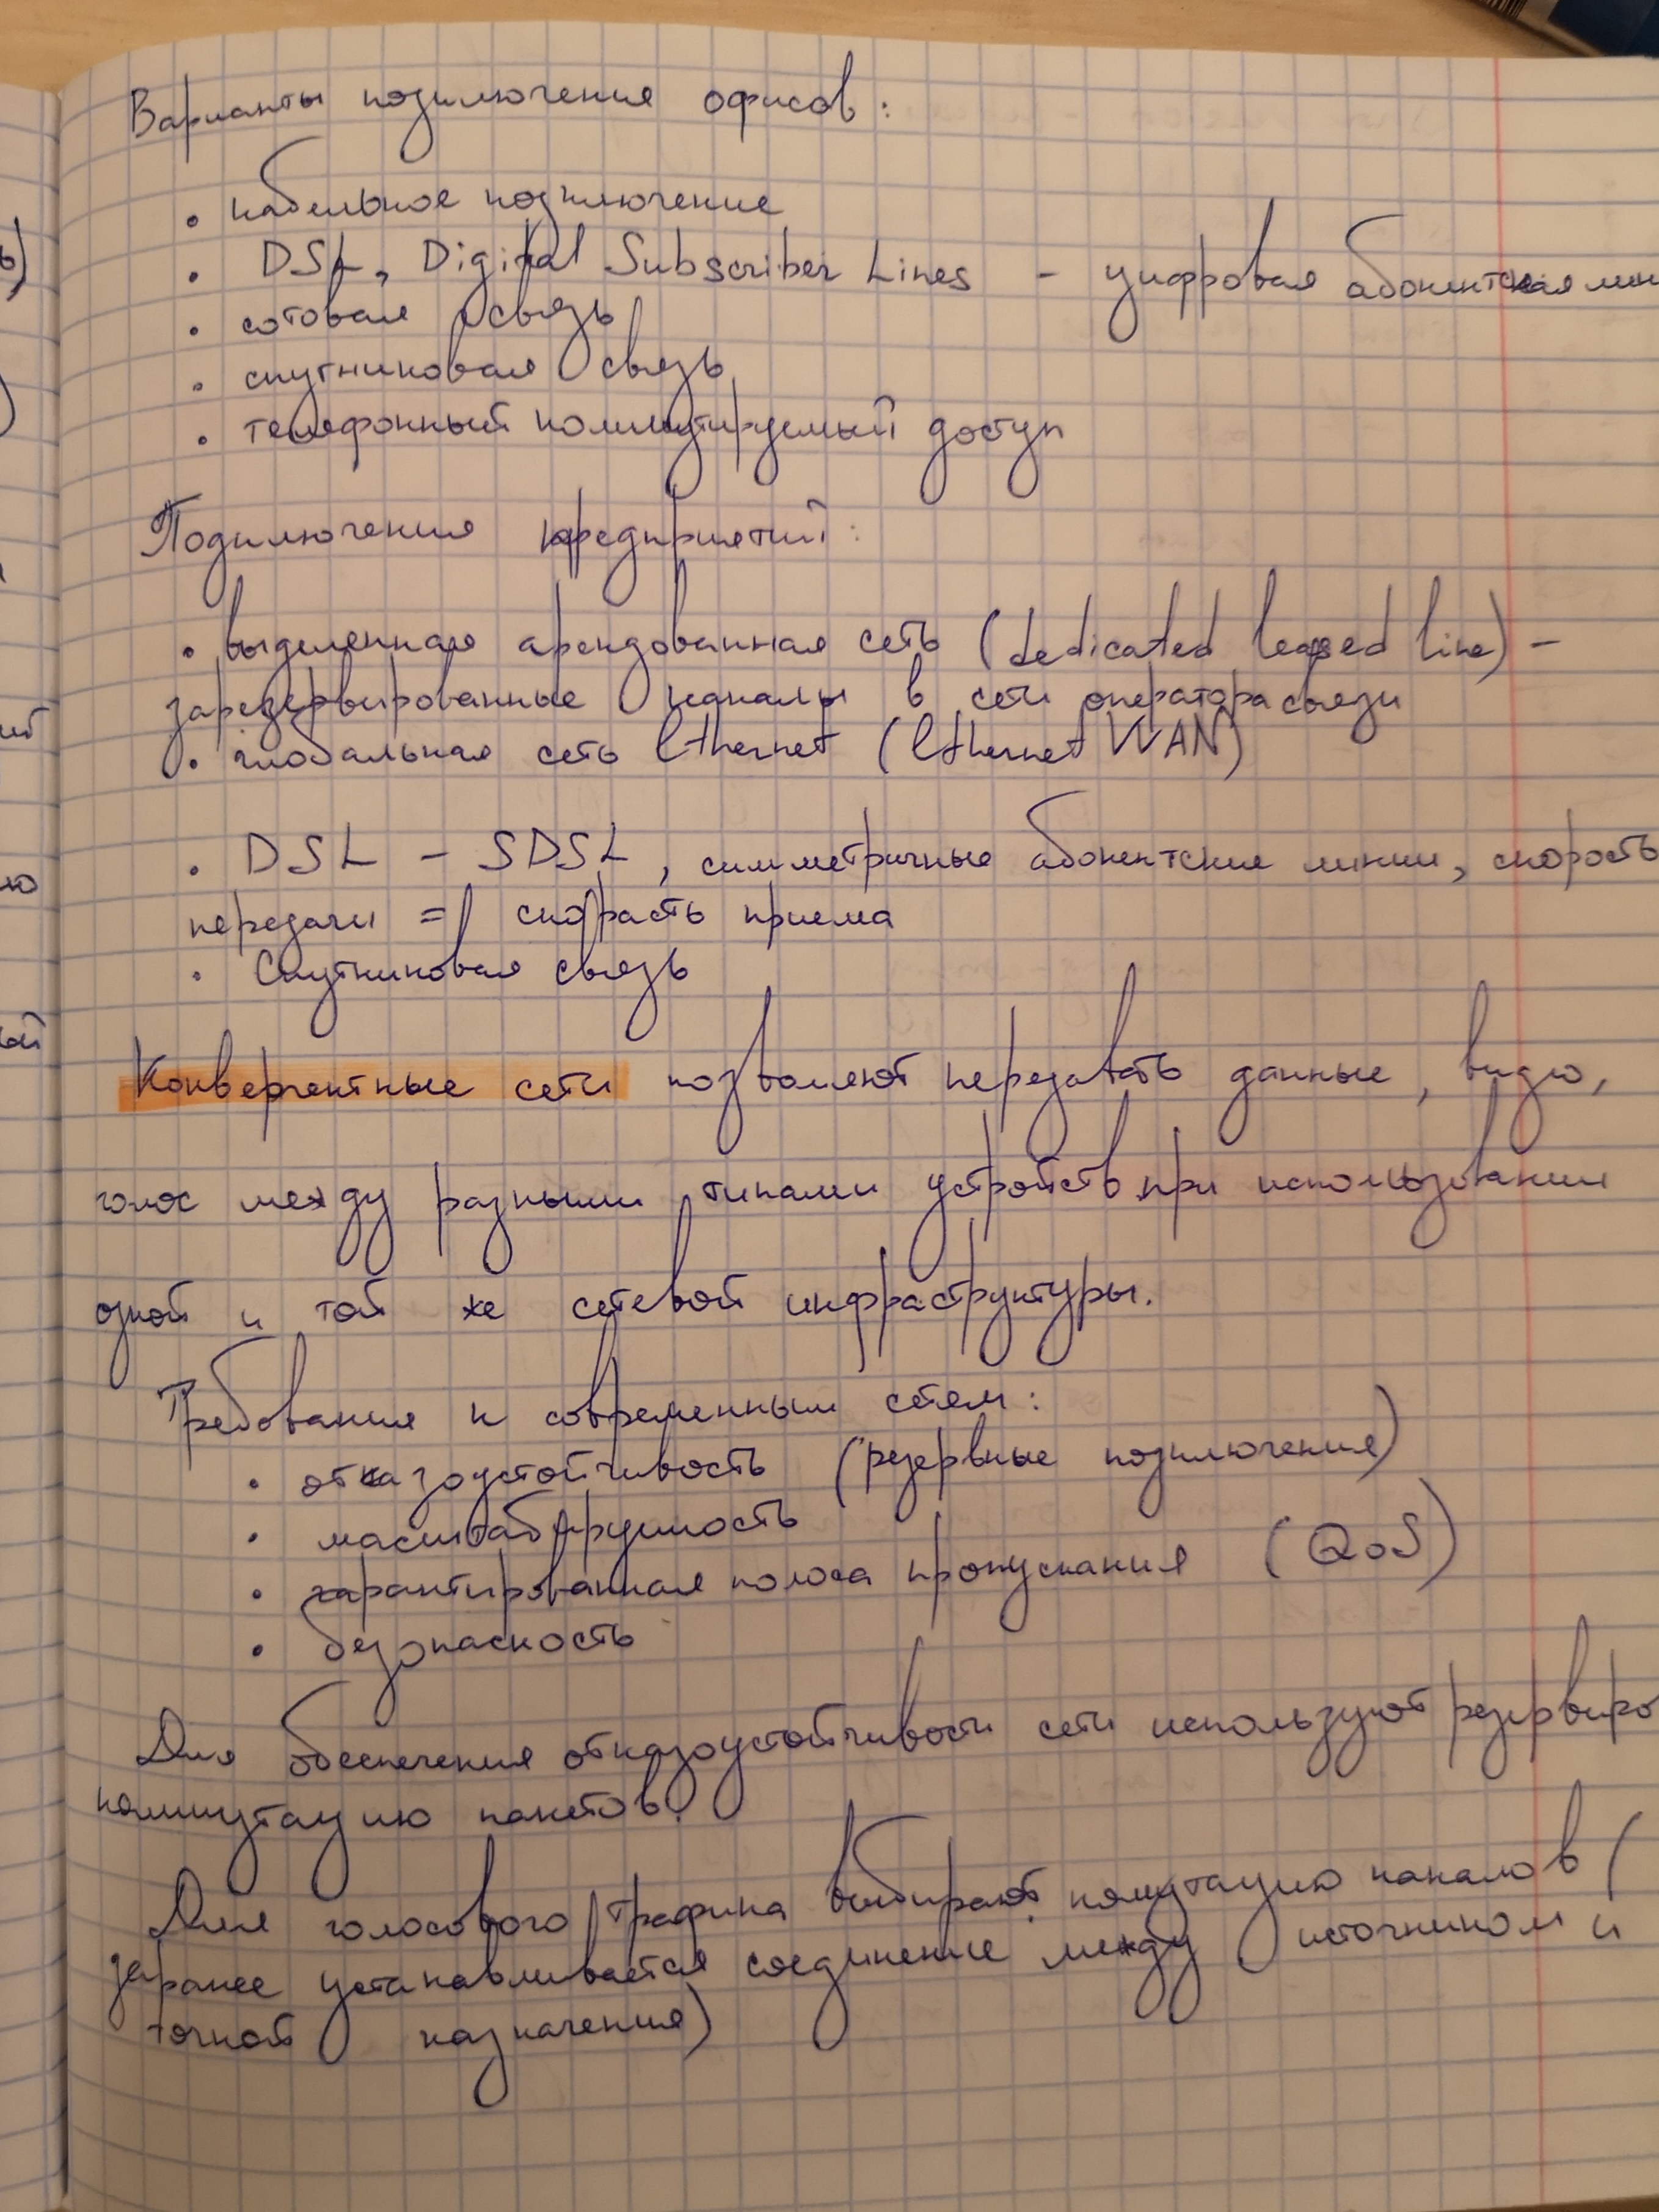 Варианты подключения офисов:
• кабельное подключение
• DSL, Digital Subscriber Lines - цифровая абонентская лин
• сотовая связь
• спутниковая связь
• телефонный коммутируемый доступ
Подключения предприятий:
• выделенная арендованная сеть (dedicated leased line) -
зарезервированные каналы в сети оператора связи
• глобальная сеть Ethernet (Ethernet WAN)
• DSL - SDSL, симметричные абонентские линии, скорость
передачи = скорасть приема
• Спутниковая связь
Конвергентные сети позволяют передавать данные, видео,
голос между разными типами устройств при использовании
одной и той же сетевой инфраструктуры.
Требования к современным сетям:
• отказоустойчивость (резервные подключения)
• масштабируемость
• гарантированная полоса пропускания (QoS)
• безопасность
Для обеспечения отказоустойчивости сети используют резервиро
коммутацию пакетов.
Для голосового трафика выбирают комутацию каналов (
заранее устанавливается соединение между источником и
точкой назначения)